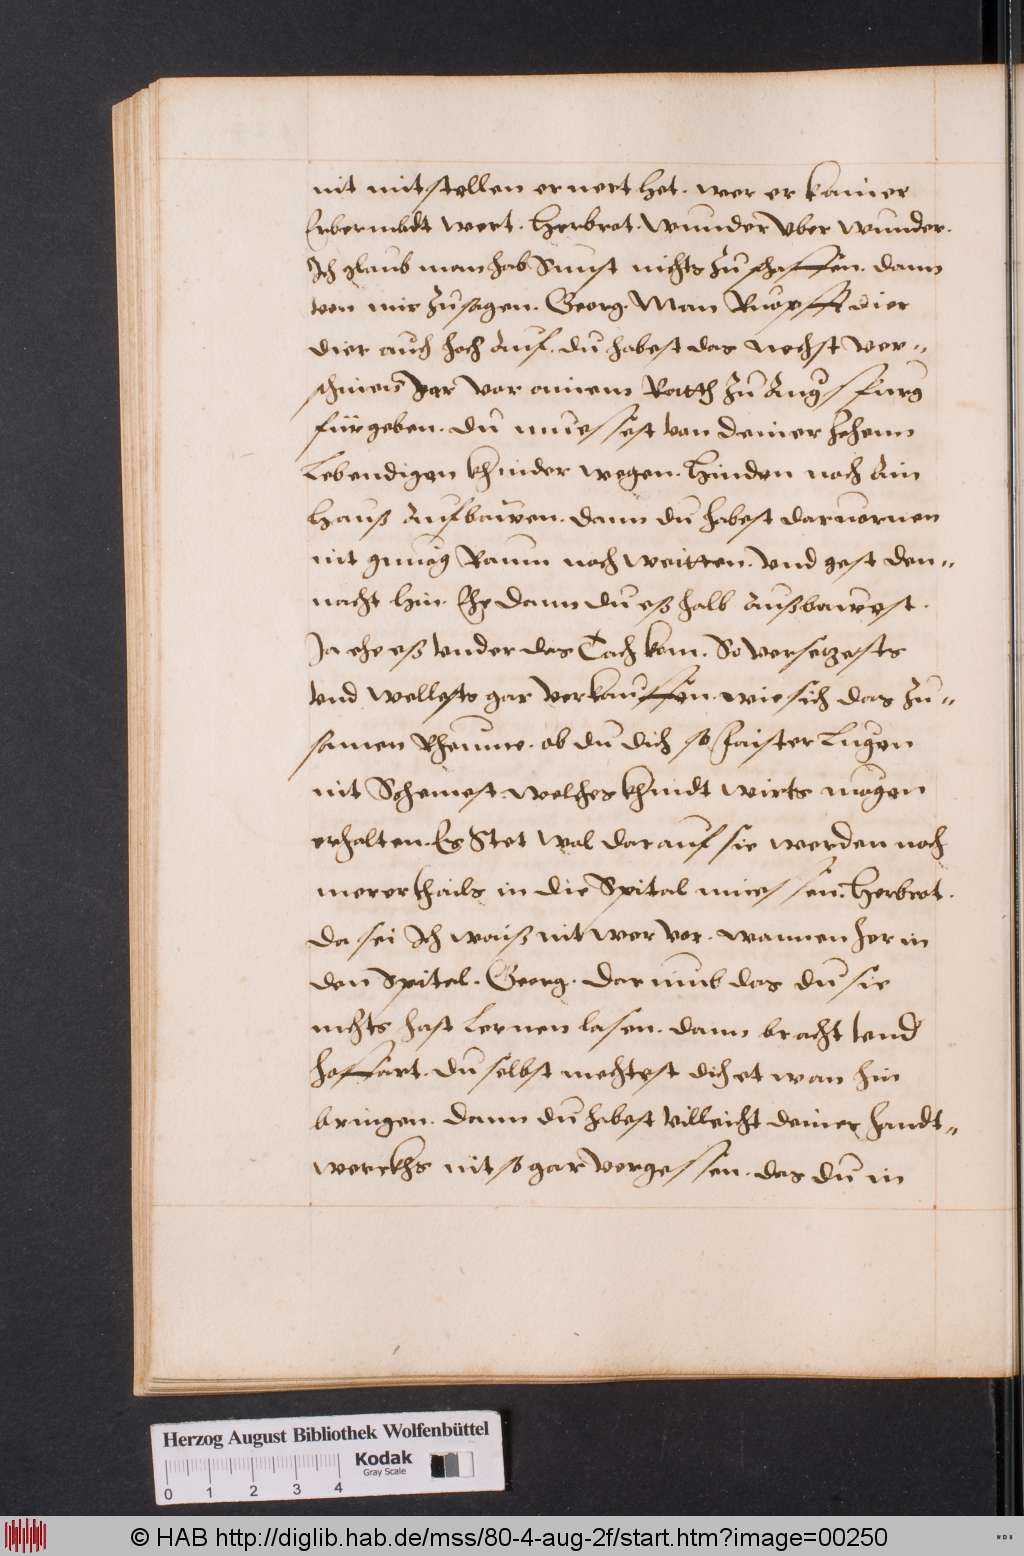 nit mit stellen ernert het. wer er kainer
Erbermbdt wert. Herbrot. Wunder vber wunder.
Ich glaub man hab Sunst nichts zu schaffen. dann
von mir zusagen. Georg. Man Ruopfft dier
dier auch hoch Auf. du habest das nechst ver-
schinen Jar vor ainem Ratth zu Augspurg
fürgeben. du muessest von deiner zehenn
Lebendigen khinder wegen. Hinden noch Ain
Hauß Aufbawen. dann du habest daruornen
nit gnuog Raum noch weitten. vnd gest den-
nacht hin. Ehe dann du eß halb Außbawest.
Ja ehe eß vnder das Tach kom. So versetzests
vnd wellests gar verkauffen. wie sich das zu-
samen Rheume. ob du dich so faister Lugen
nit Schemest. welches khindt wirts mögen
erhalten. Es Stet wol darauf sie werden noch
merer thails in die Spital muessen. Herbrot.
da sei Ich waiß nit wer vor. wannen her in
den Spital. Georg. darumb das du sie
nichts hast Lernen lasen. dann bracht vnd
hoffart. du selbst mechtest dich et wan hin
bringen. dann du habest villeicht deiner handt-
werckhs nit so gar vergessen. das du in
Herzog August Bibliothek Wolfenbüttel
Kodak
Gray Scale
0 1 2 3 4
© HAB http://diglib.hab.de/mss/80-4-aug-2f/start.htm?image=00250